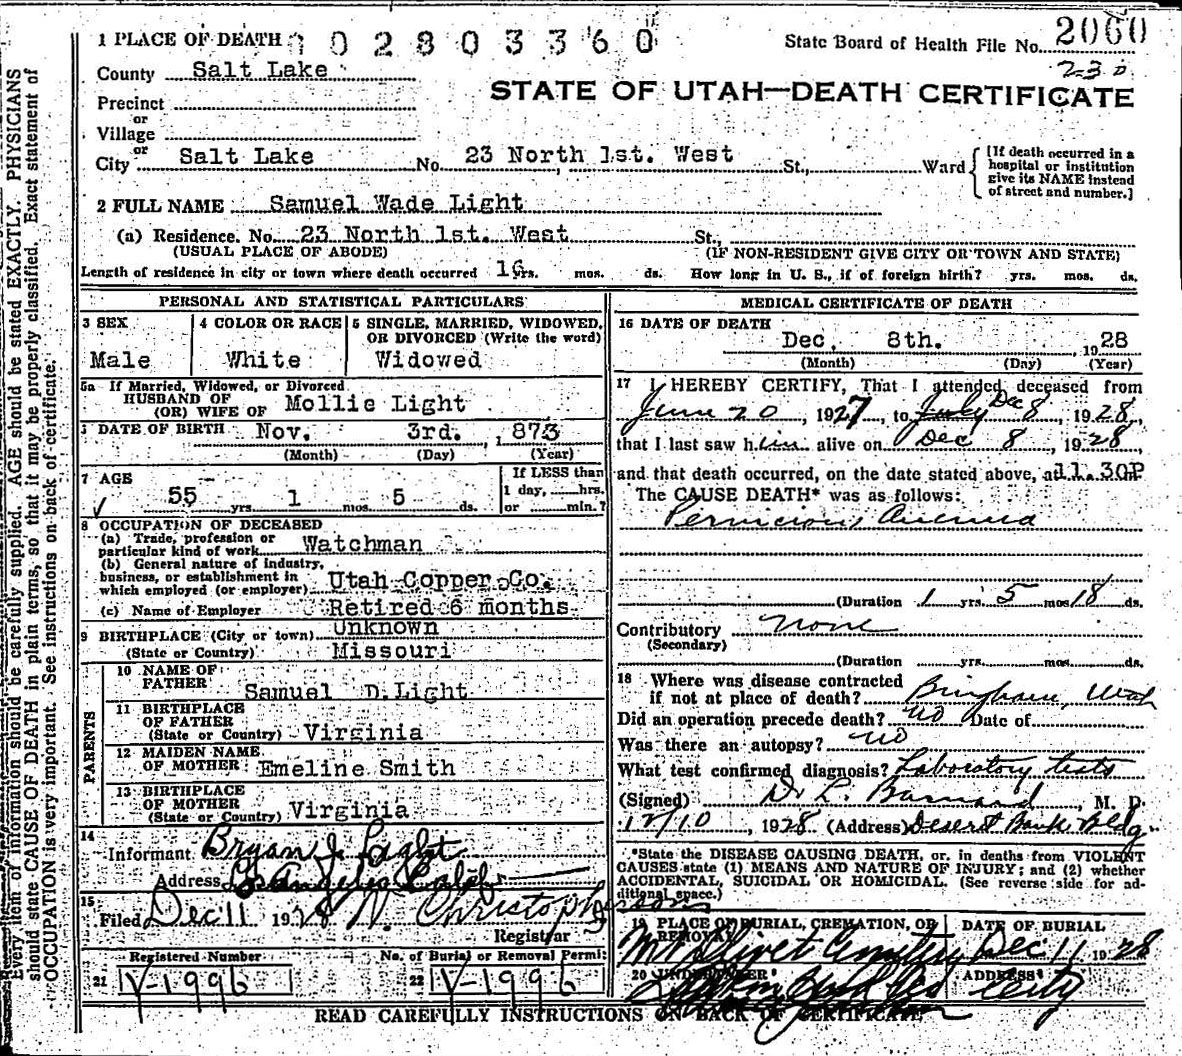 1 PLACE OF DEATH 0 2 8 0 3 3 6 0
State Board of Health File No. 2060
230
County Salt Lake
STATE OF UTAH—DEATH CERTIFICATE
Precinct
or
Village
or
City Salt Lake No. 23 North 1st. West St., Ward
[If death occurred in a
hospital or institution
give its NAME instead
of street and number.]
2 FULL NAME Samuel Wade Light
(a) Residence. No. 23 North 1st. West St.,
(USUAL PLACE OF ABODE) (IF NON-RESIDENT GIVE CITY OR TOWN AND STATE)
Length of residence in city or town where death occurred 16 yrs. mos. ds. How long in U. S., if of foreign birth? yrs. mos. ds.
PERSONAL AND STATISTICAL PARTICULARS
3 SEX
Male
4 COLOR OR RACE
White
5 SINGLE, MARRIED, WIDOWED,
OR DIVORCED (Write the word)
Widowed
5a If Married, Widowed, or Divorced
HUSBAND OF
(OR) WIFE OF Mollie Light
6 DATE OF BIRTH Nov. 3rd. , 1873
(Month) (Day) (Year)
7 AGE
55 yrs. 1 mos. 5 ds.
If LESS than
1 day, hrs.
or min.?
8 OCCUPATION OF DECEASED
(a) Trade, profession or
particular kind of work Watchman
(b) General nature of industry,
business, or establishment in
which employed (or employer) Utah Copper Co.
(c) Name of Employer Retired 6 months
9 BIRTHPLACE (City or town) Unknown
(State or Country) Missouri
PARENTS
10 NAME OF
FATHER Samuel D. Light
11 BIRTHPLACE
OF FATHER
(State or Country) Virginia
12 MAIDEN NAME
OF MOTHER Emeline Smith
13 BIRTHPLACE
OF MOTHER
(State or Country) Virginia
14
Informant Bryan J. Light
Address Los Angeles Calif
15
Filed Dec 11 1928
Registrar
Registered Number
21 V-1996
No. of Burial or Removal Permit
22 V-1996
MEDICAL CERTIFICATE OF DEATH
16 DATE OF DEATH
Dec. 8th. , 1928
(Month) (Day) (Year)
17 I HEREBY CERTIFY, That I attended deceased from
June 20, 1927, to July Dec 8, 1928,
that I last saw him alive on Dec 8, 1928,
and that death occurred, on the date stated above, at 11.30P
The CAUSE DEATH* was as follows:
Pernicious Anemia
(Duration 1 yrs. 5 mos 18 ds.
Contributory none
(Secondary)
(Duration yrs. mos. ds.
18 Where was disease contracted
if not at place of death? Bingham, Utah
Did an operation precede death? no Date of
Was there an autopsy? no
What test confirmed diagnosis? Laboratory tests
(Signed) Dr L. Barnard, M. D.
12/10, 1928 (Address) Desert Bank Bldg.
*State the DISEASE CAUSING DEATH, or, in deaths from VIOLENT
CAUSES state (1) MEANS AND NATURE OF INJURY; and (2) whether
ACCIDENTAL, SUICIDAL OR HOMICIDAL. (See reverse side for ad-
ditional space.)
19 PLACE OF BURIAL, CREMATION, OR
REMOVAL
Mt Olivet Cemetery
DATE OF BURIAL
Dec 11 1928
20 UNDERTAKER
ADDRESS
City
READ CAREFULLY INSTRUCTIONS ON BACK OF CERTIFICATE
Every item of information should be carefully supplied. AGE should be stated EXACTLY. PHYSICIANS
should state CAUSE OF DEATH in plain terms, so that it may be properly classified. Exact statement of
OCCUPATION is very important. See instructions on back of certificate.